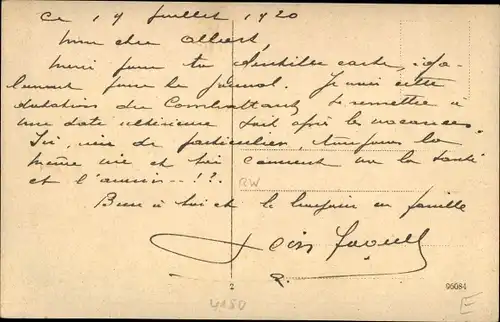 Ce 19 Juillet 1920
Mon cher Albert,
Merci pour ta gentille carte,
l'envoi pour le journal. Je vais cette
du Combattant, la remettre à
une date ultérieure soit après les vacances.
Ici, rien de particulier, toujours la
même vie et toi comment va la santé
et l'amour --!?.
RW
Bien à toi et le bonjour en famille
2
96084
4180
E